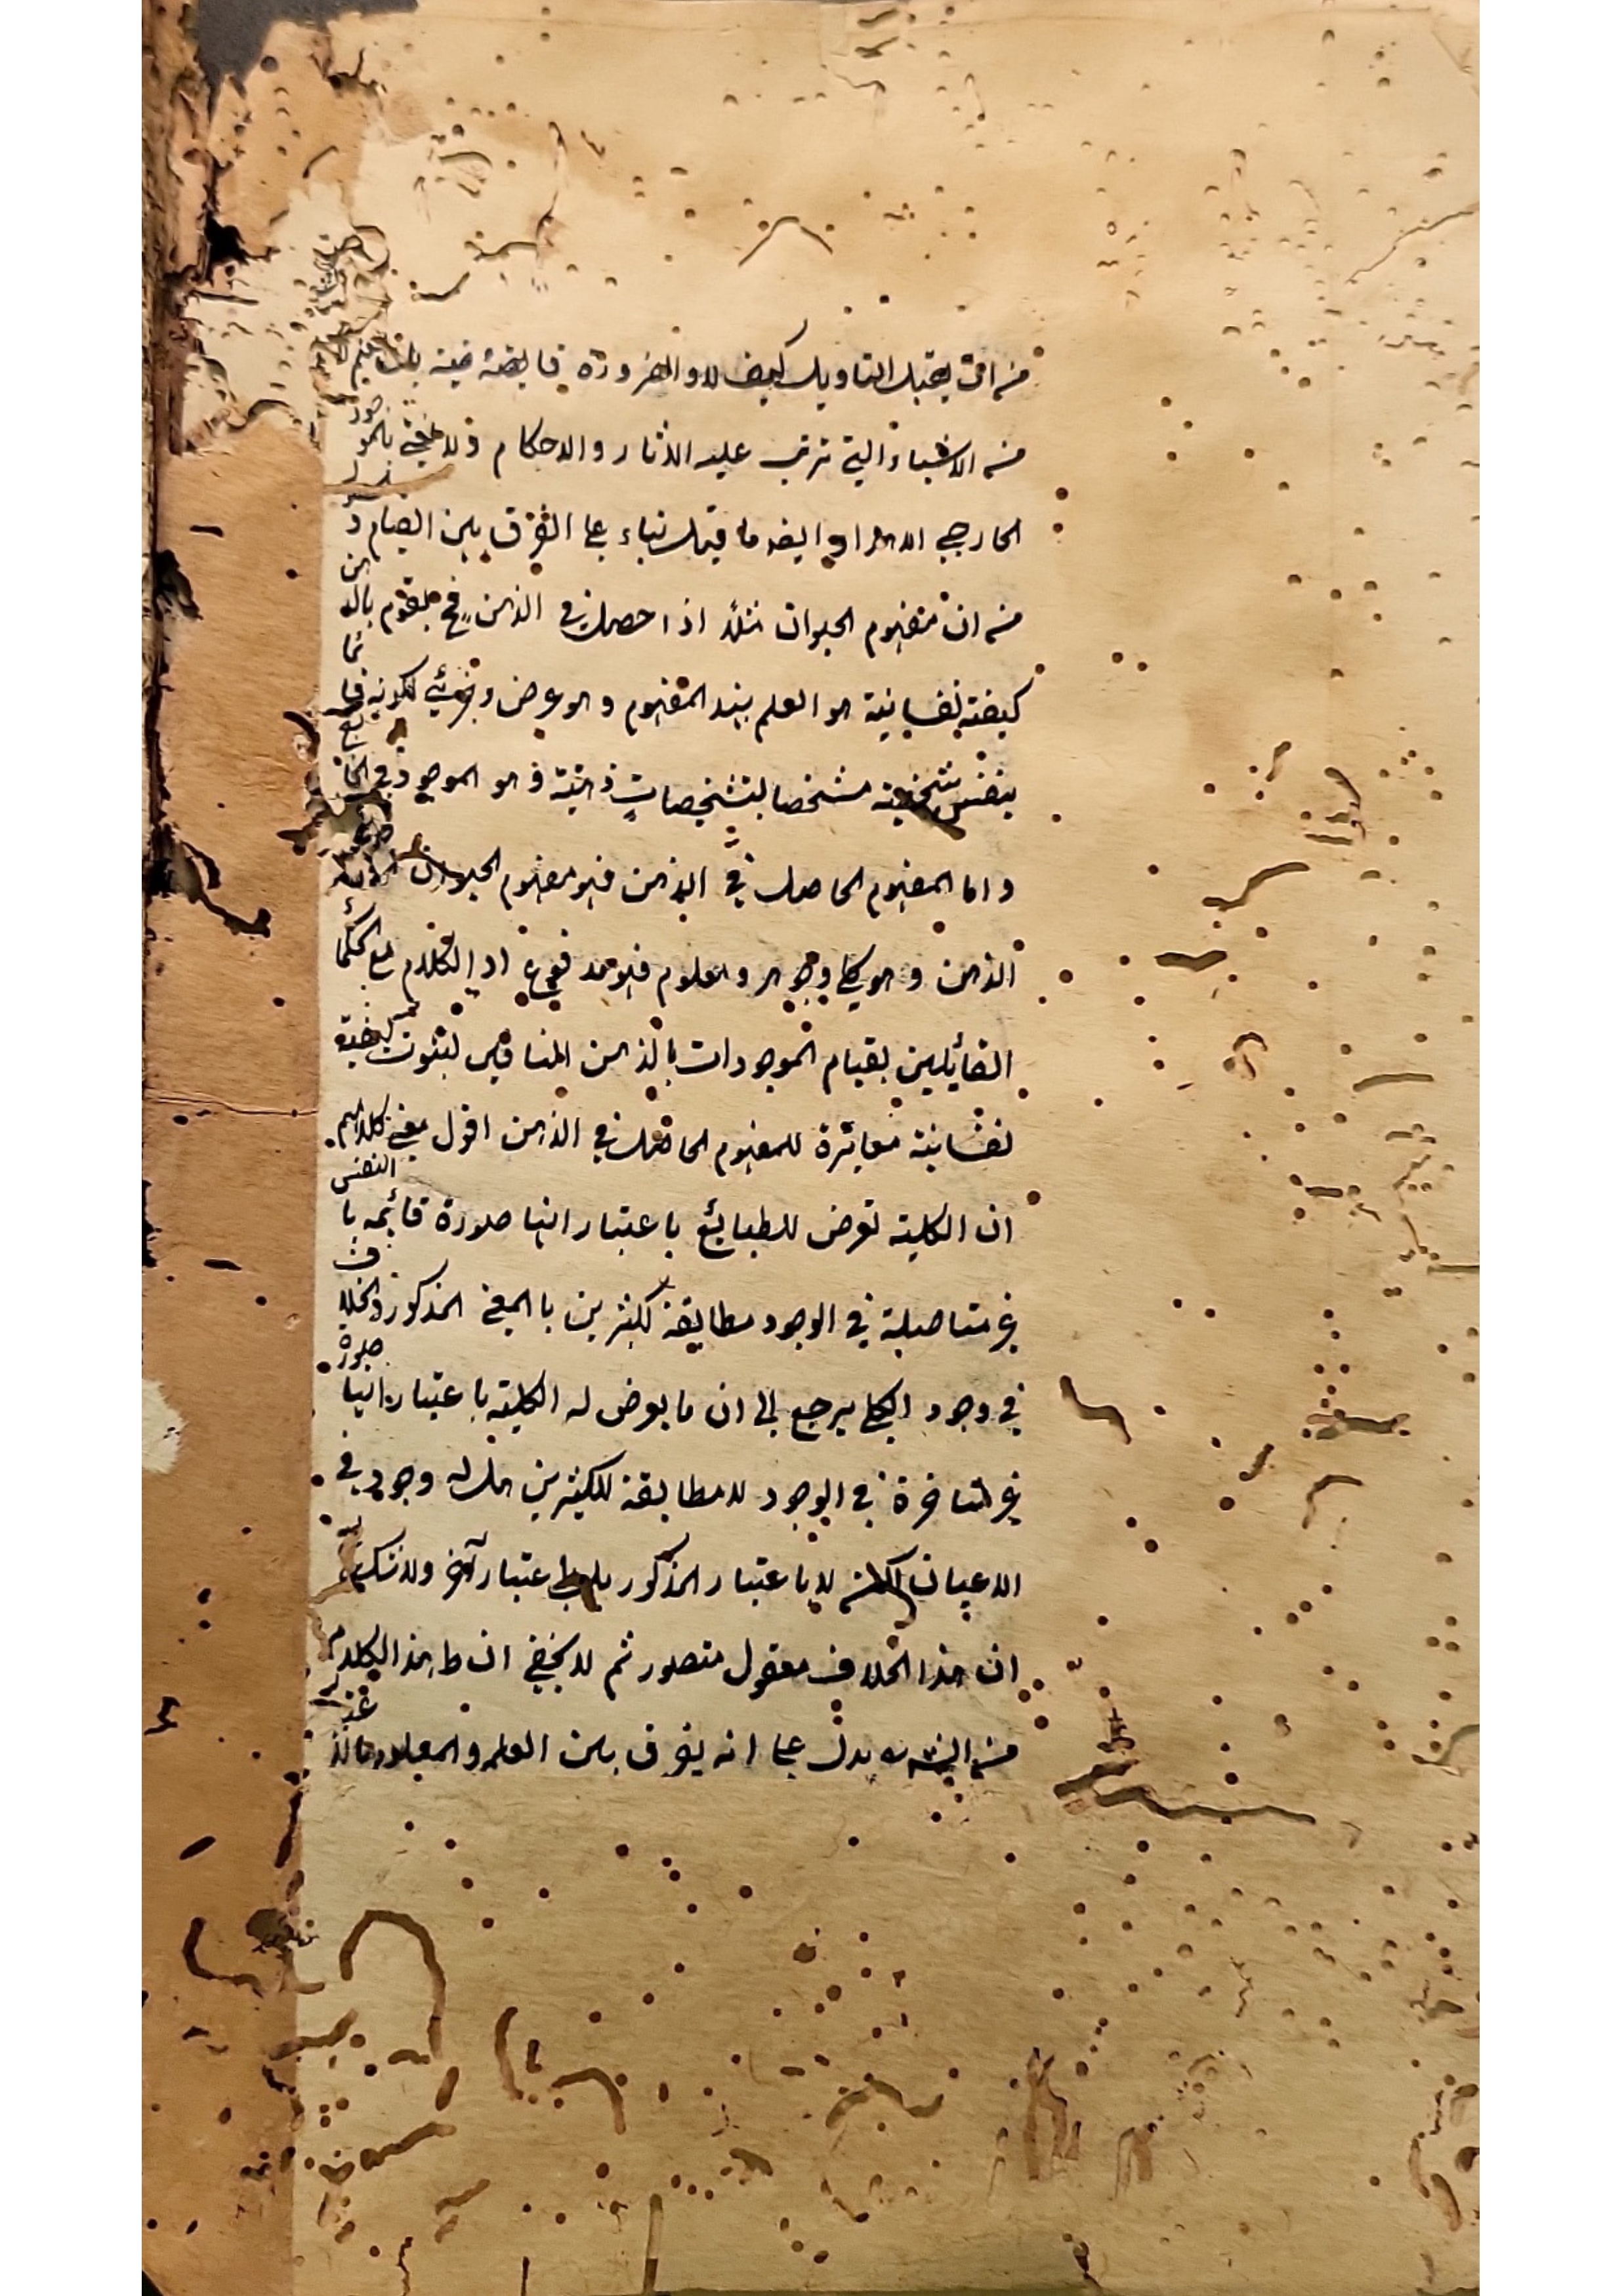 من ان يقبل التاويل كيف لا والضرورة قاضية
من الاشياء التي ترتب عليه الاثار والاحكام ولا
الخارجي الا هذا وايضا ما قيل بناء على الفرق بين القيام و
من ان مفهوم الحيوان مثلا اذا حصل في الذهن فح يقوم بالذهن
كيفية نفسانية هو العلم بهذا المفهوم وهو عرض وجزئي لكونه قائما
بنفس شخصية متشخصا بتشخصات ذهنية وهو الموجود في الخارج
واما المفهوم الحاصل في الذهن فهو مفهوم الحيوان
الذهن وهو كلي وجوهر ومعلوم فهو مدفوع اذ الكلام مع الحكماء
القائلين بقيام الموجودات بالذهن المنافين لثبوت كيفية
نفسانية مغايرة للمفهوم الحاصل في الذهن اقول معنى كلامهم
ان الكلية تعرض للطبائع باعتبار انها صورة قائمه با النفس
غير متاصلة في الوجود مطابقة لكثيرين با المعنى المذكور والخلاف
في وجود الكلي يرجع الى ان ما يعرض له الكلية باعتبار انها صورة
غير متاخرة في الوجود لا مطابقة للكثيرين هل له وجود في
الاعيان لا باعتبار المذكور بل باعتبار آخر ولا شك
ان هذا الخلاف معقول متصور ثم لا يخفى ان ظ هذا الكلام
من يدل على انه يفرق بين العلم والمعلوم